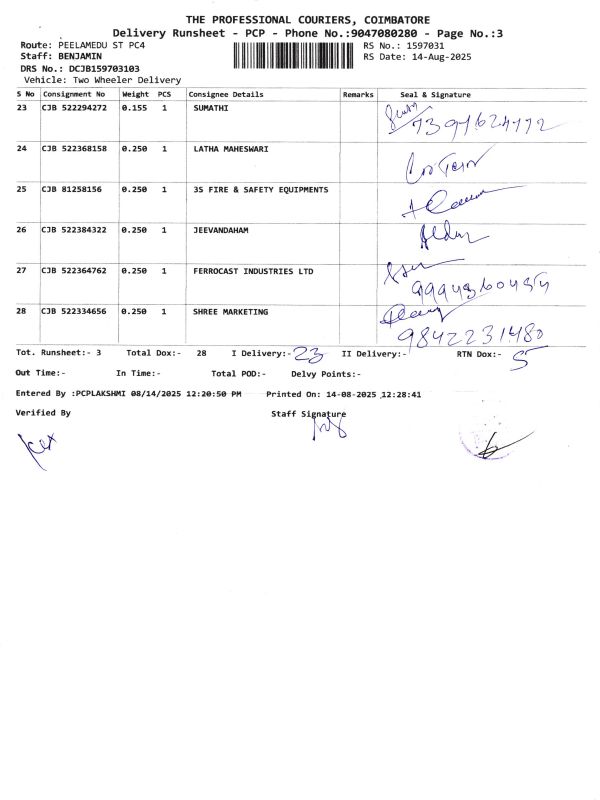 THE PROFESSIONAL COURIERS, COIMBATORE
Delivery Runsheet - PCP - Phone No.:9047080280 - Page No.:3
Route: PEELAMEDU ST PC4 RS No.: 1597031
Staff: BENJAMIN RS Date: 14-Aug-2025
DRS No.: DCJB159703103
Vehicle: Two Wheeler Delivery
S No Consignment No Weight PCS Consignee Details Remarks Seal & Signature
23 CJB 522294272 0.155 1 SUMATHI
24 CJB 522368158 0.250 1 LATHA MAHESWARI
25 CJB 81258156 0.250 1 3S FIRE & SAFETY EQUIPMENTS
26 CJB 522384322 0.250 1 JEEVANDAHAM
27 CJB 522364762 0.250 1 FERROCAST INDUSTRIES LTD
28 CJB 522334656 0.250 1 SHREE MARKETING
9842231480
Tot. Runsheet:- 3 Total Dox:- 28 I Delivery:- 23 II Delivery:- RTN Dox:- 5
Out Time:- In Time:- Total POD:- Delvy Points:-
Entered By :PCPLAKSHMI 08/14/2025 12:20:50 PM Printed On: 14-08-2025 12:28:41
Verified By Staff Signature